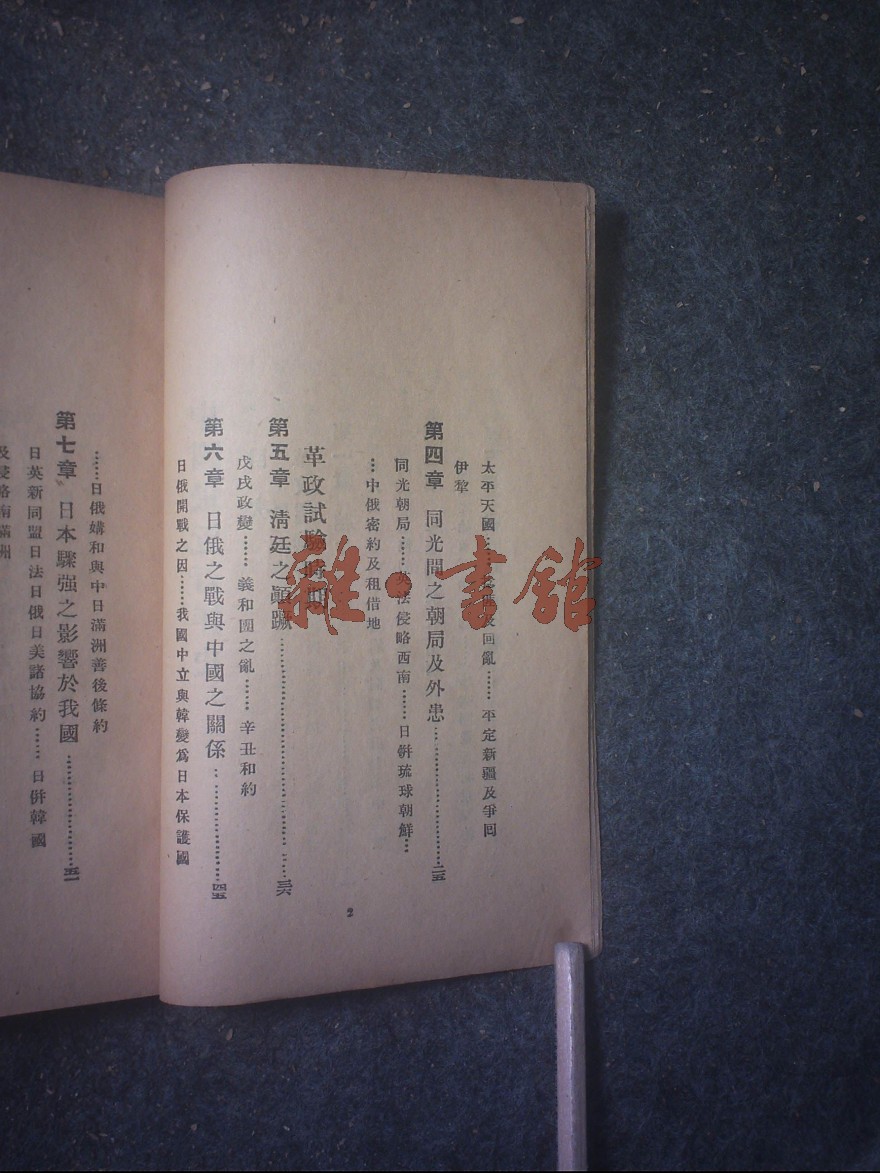 太平天國……及回亂……平定新疆及爭回
伊犂
第四章 同光間之朝局及外患……二五
同光朝局……英法侵略西南……日併琉球朝鮮…
…中俄密約及租借地
革政試驗時期
第五章 清廷之顛蹶……三六
戊戌政變……義和團之亂……辛丑和約
第六章 日俄之戰與中國之關係……四五
日俄開戰之因……我國中立與韓變爲日本保護國
2
……日俄媾和與中日滿洲善後條約
第七章 日本驟强之影響於我國……五一
日英新同盟日法日俄日美諸協約……日併韓國
及侵略南滿洲
雜·書館